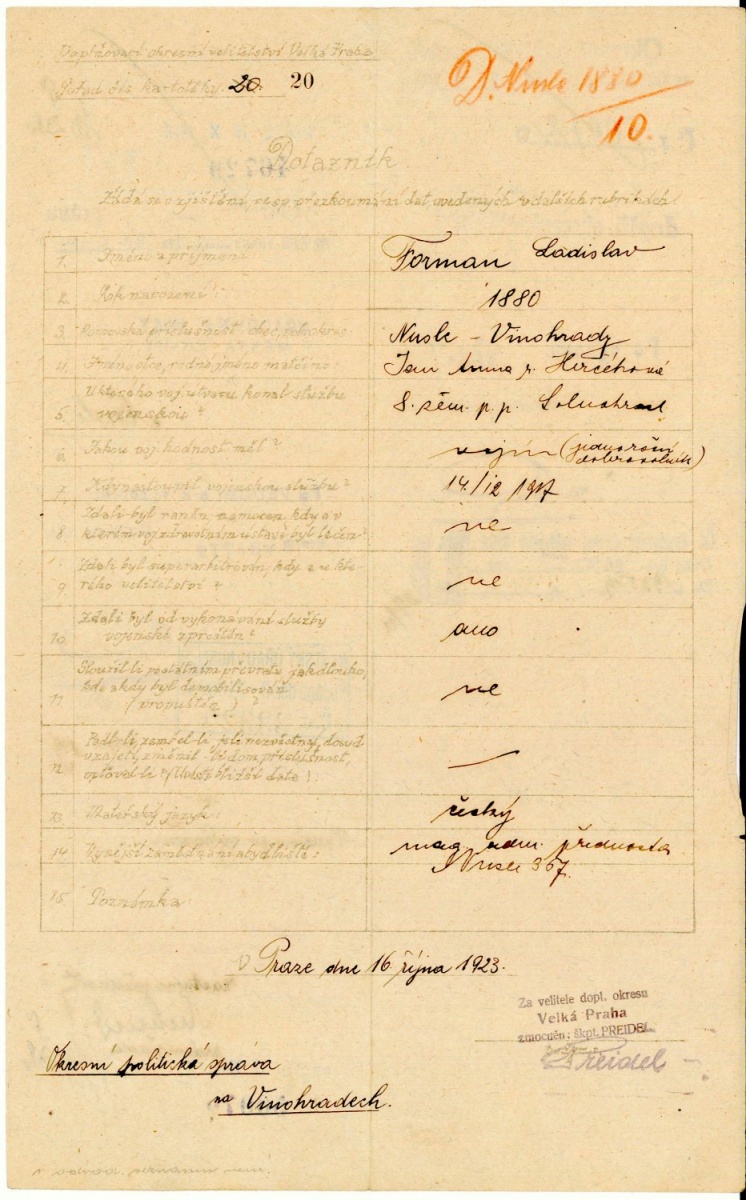 Doplňovací okresní velitelství Velká Praha
Pořad. čís. kartotéky. 20. 20
D. Nusle 1880
10.
Dotazník
Žádá se o zjištění, resp. přezkoumání dat, uvedených v dalších rubrikách
1. Jméno a příjmení: Forman Ladislav
2. Rok narození: 1880
3. Domovská příslušnost, obec, pol. okres: Nusle - Vinohrady
4. Jméno otce, rodné jméno matčino: Jan Anna r.
5. U kterého voj. útvaru konal službu
vojenskou? 8. zem. p. p.
6. Jakou voj. hodnost měl? vojín (jednoroční
dobrovolník)
7. Kdy nastoupil vojenskou službu? 14./12 1917
8. Zdali byl raněn, nemocen, kdy a v
kterém voj. zdravotním ústavě byl léčen? ne
9. Zdali byl superarbitrován, kdy a u kte-
rého velitelství? ne
10. Zdali byl od vykonávání služby
vojenské zproštěn? ano
11. Sloužil-li po státním převratu, jak dlouho,
kde a kdy byl demobilisován
(propuštěn)? ne
12. Padl-li, zemřel-li, je-li nezvěstný, dosud
v zajetí, změnil-li dom. příslušnost,
optoval-li? (Uvésti bližší data). —
13. Mateřský jazyk: český
14. Nynější zaměstnání a bydliště: mag. adm. přednosta
Nusle 367.
15. Poznámka:
V Praze dne 16. října 1923.
Za velitele dopl. okresu
Velká Praha
zmocněn: škpt. PREIDEL
Preidel
Okresní politická správa
na Vinohradech.